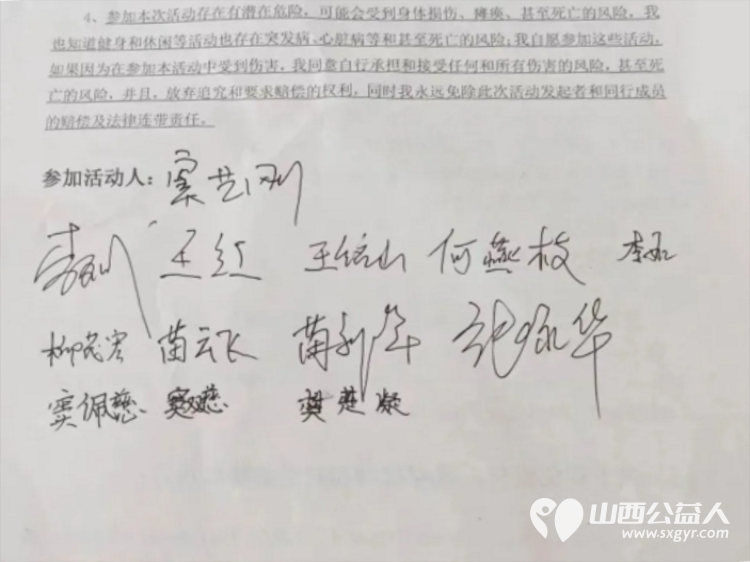 4、参加本次活动存在有潜在危险，可能会受到身体损伤、瘫痪、甚至死亡的风险，我
也知道健身和休闲等活动也存在突发病、心脏病等和甚至死亡的风险；我自愿参加这些活动，
如果因为在参加本活动中受到伤害，我同意自行承担和接受任何和所有伤害的风险，甚至死
亡的风险，并且，放弃追究和要求赔偿的权利，同时我永远免除此次活动发起者和同行成员
的赔偿及法律连带责任。
参加活动人：窦艺刚
王红 何燕枝
苗云飞
窦佩慈 樊楚凝
山西公益人
www.sxgyr.com